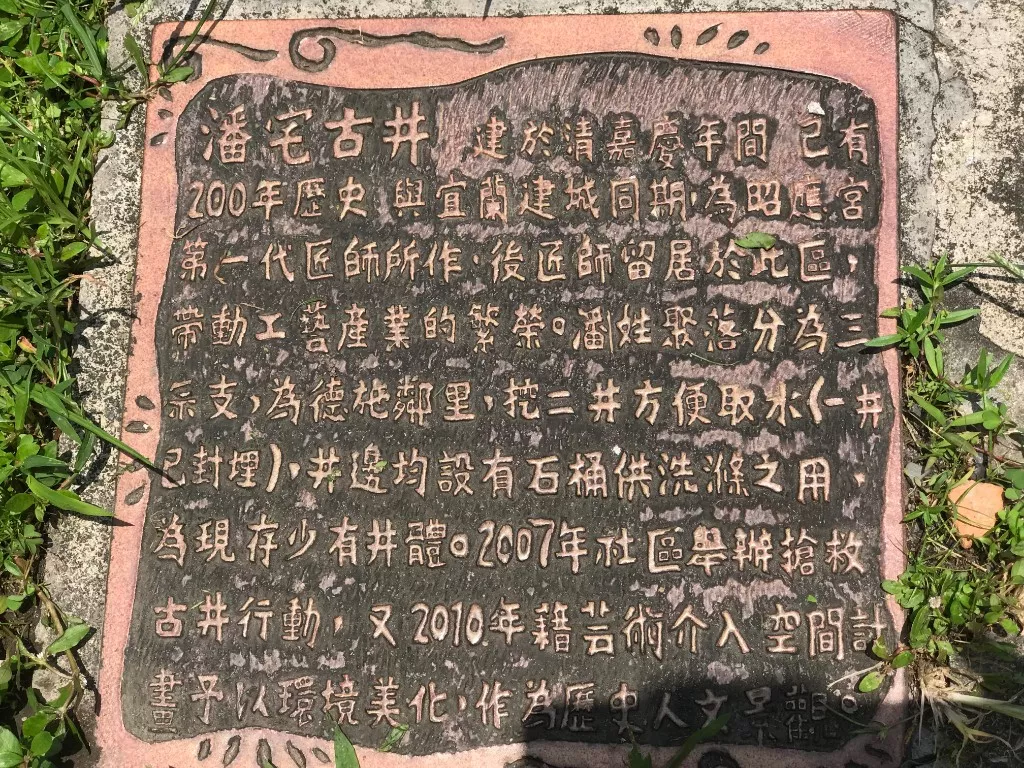 潘宅古井 建於清嘉慶年間 已有
200年歷史 與宜蘭建城同期,為昭應宮
第一代匠師所作,後匠師留居於此區,
帶動工藝產業的繁榮。潘姓聚落分為三
宗支,為德施鄰里,挖二井方便取水(一井
已封埋),井邊均設有石桶供洗滌之用,
為現存少有井體。2007年社區舉辦搶救
古井行動,又2010年藉芸術介入空間計
畫予以環境美化,作為歷史人文景觀。